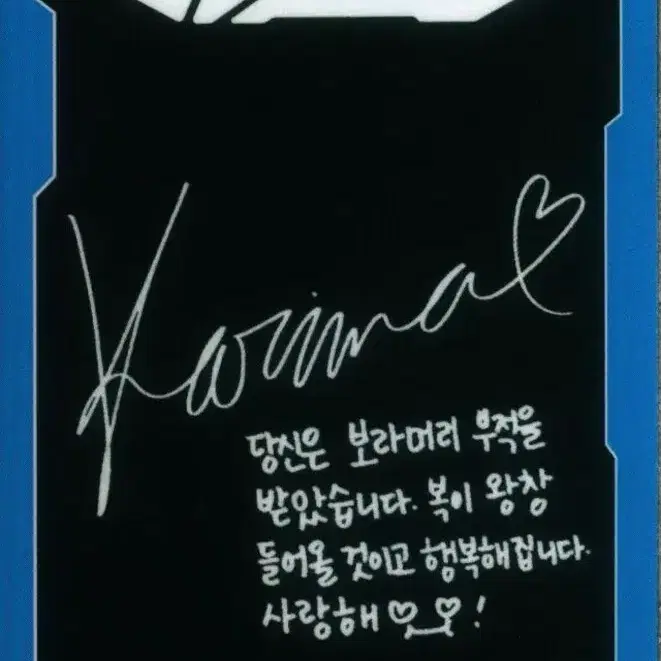 Karina♡
당신은 보라머리 부적을
받았습니다. 복이 왕창
들어올 것이고 행복해집니다.
사랑해♡_♡!